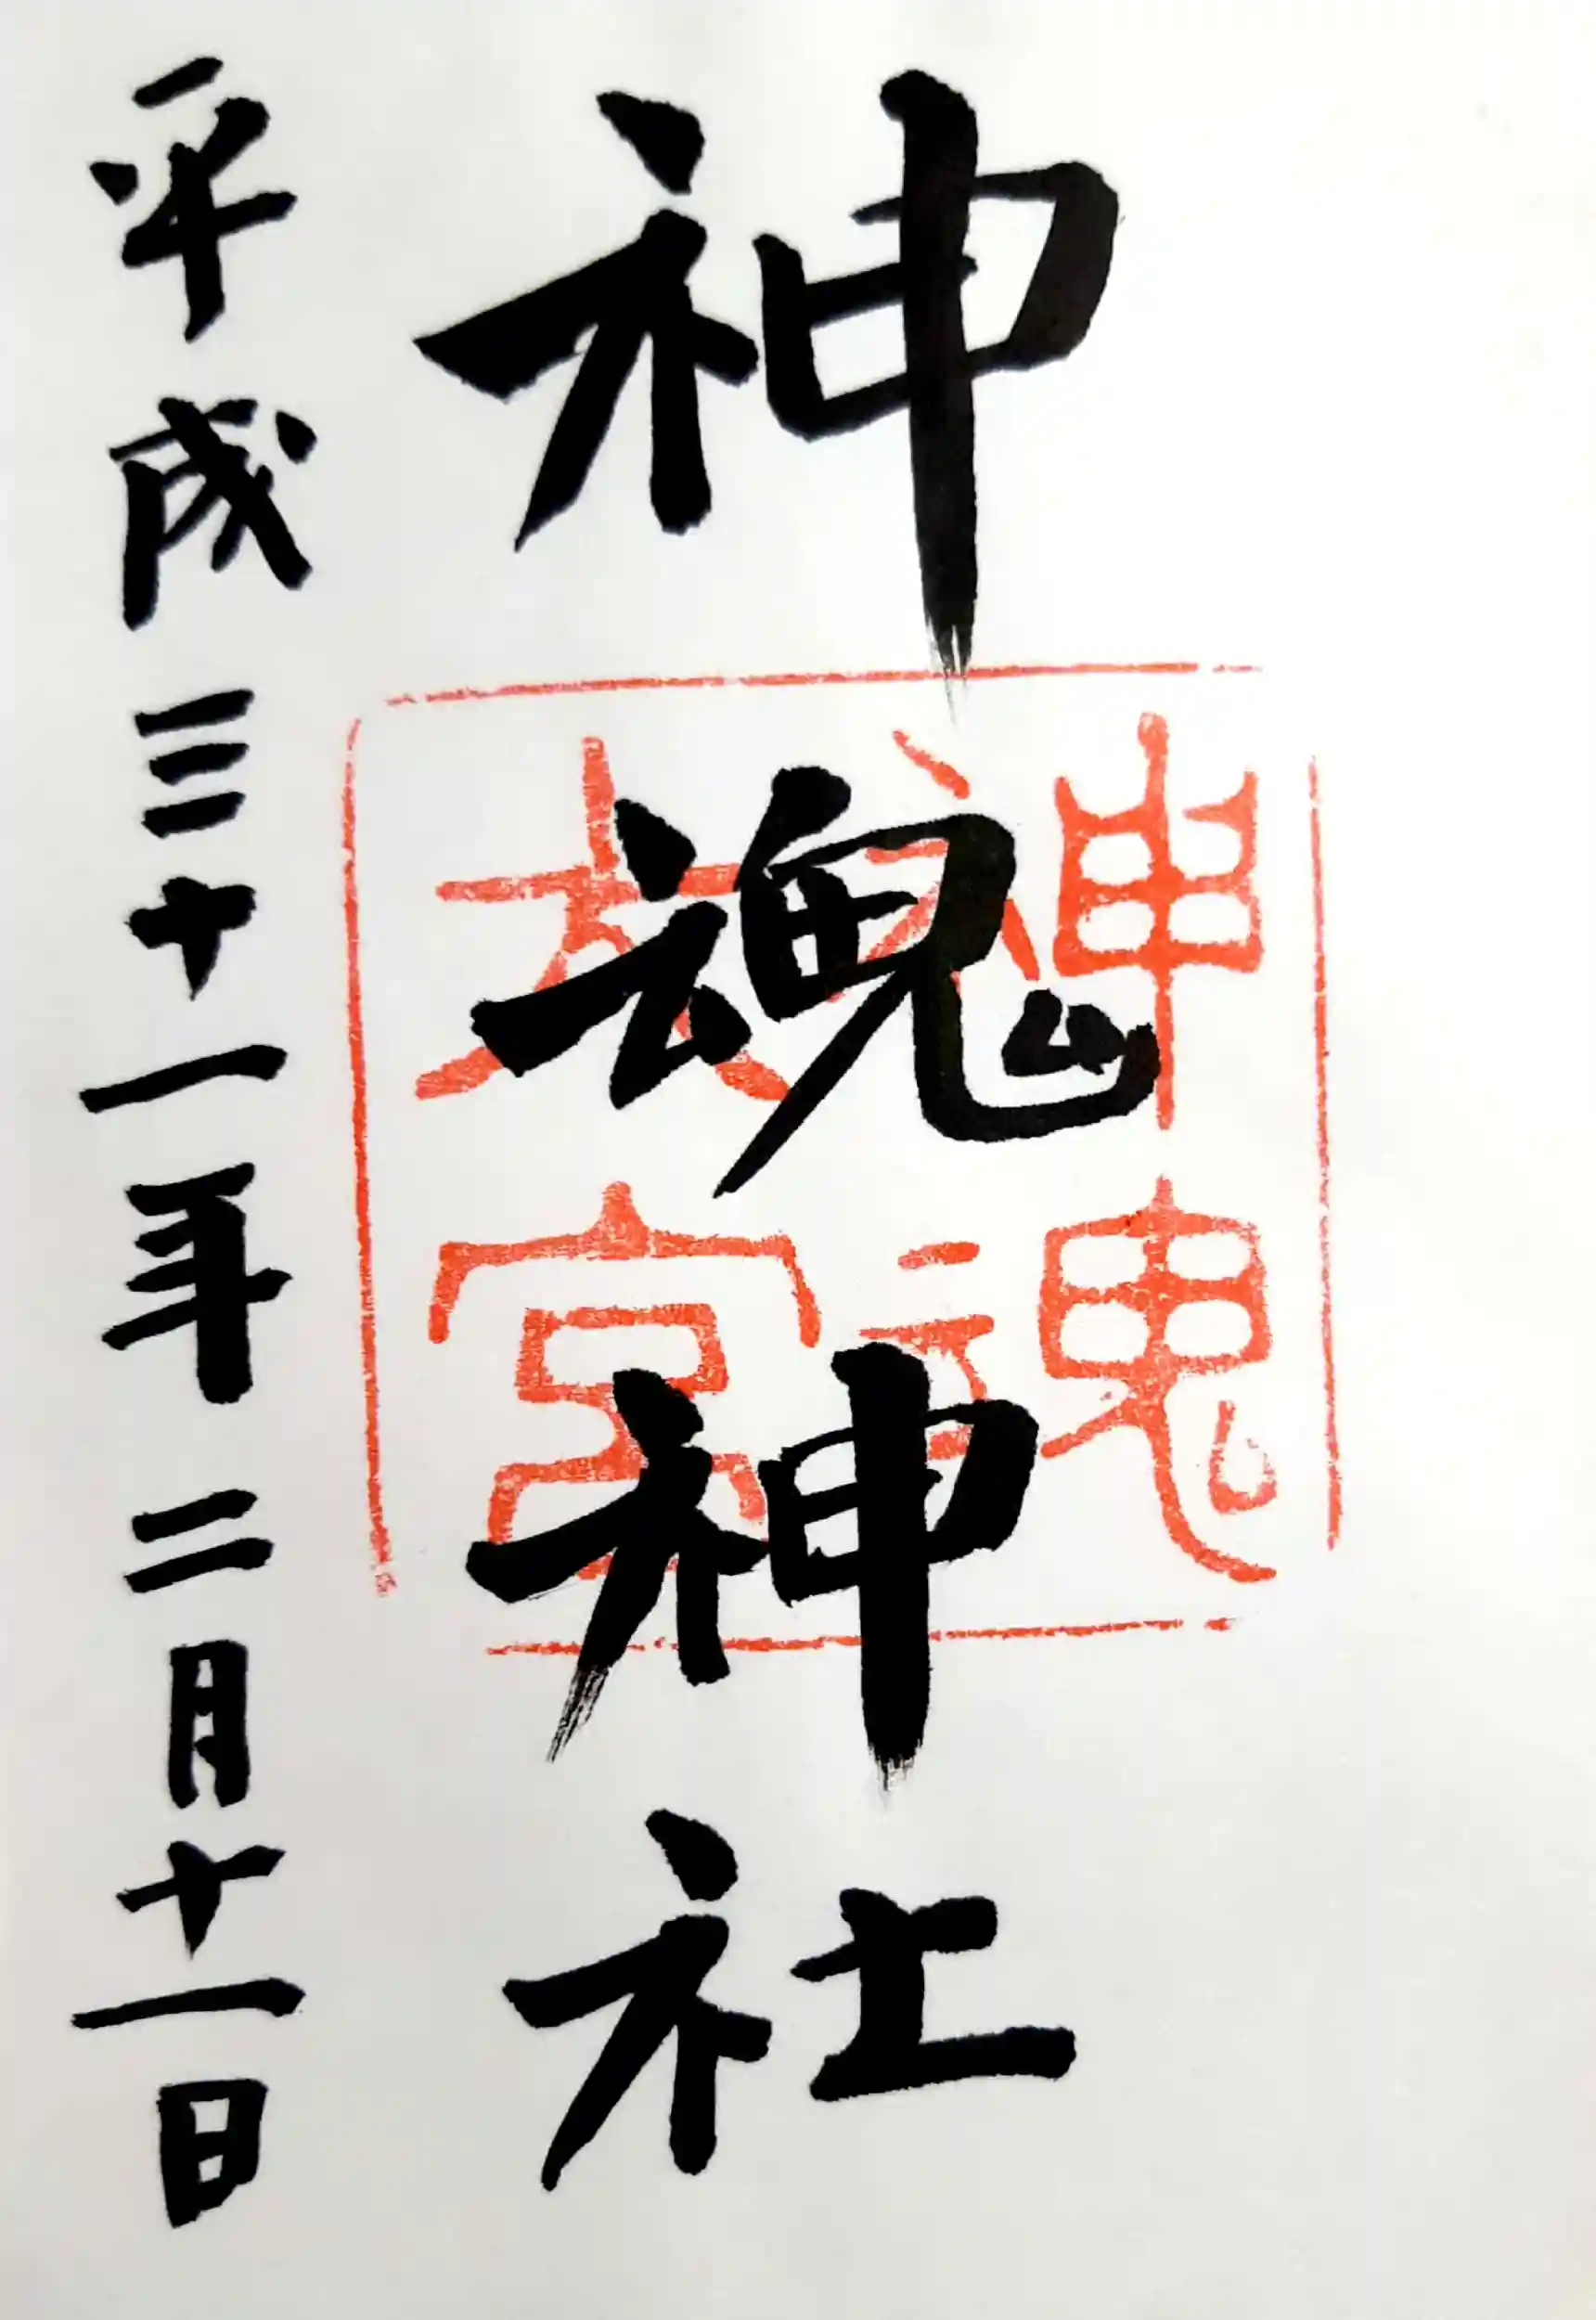 神魂神社
神魂大宮
平成三十一年二月十一日